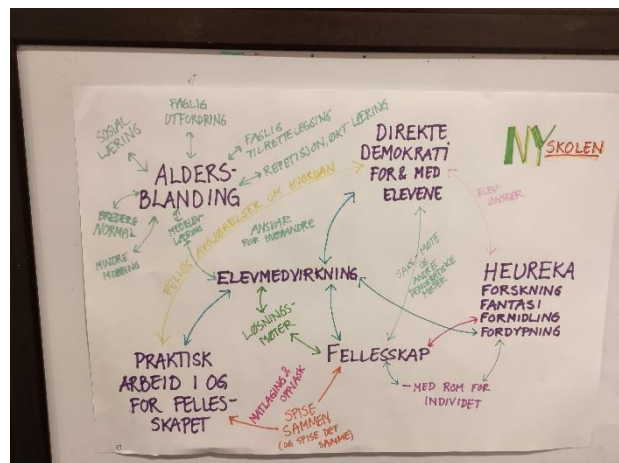 FAGLIG
UTFORDRING
SOSIAL
LÆRING
FAGLIG
TILRETTELEGGING
REPETISJON, ØKT LÆRING
ALDERS-
BLANDING
BREDERE
NORMAL
MINDRE
MOBBING
MEDELEV-
LÆRING
ANSVAR
FOR HVERANDRE
FELLES AVGJØRELSER OM HVORDAN
DIREKTE
DEMOKRATI
FOR & MED
ELEVENE
NYSKOLEN
ELEV-
ØNSKER
ELEVMEDVIRKNING
LØSNINGS-
MØTER
MØTE
OG
ANDRE
DEMOKRATISKE
MØTER
HEUREKA
FORSKNING
FANTASI
FORMIDLING
FORDYPNING
PRAKTISK
ARBEID I OG
FOR FELLES-
SKAPET
MATLAGING &
OPPVASK
SPISE
SAMMEN
(OG SPISE DET
SAMME)
FELLESSKAP
- MED ROM FOR
INDIVIDET